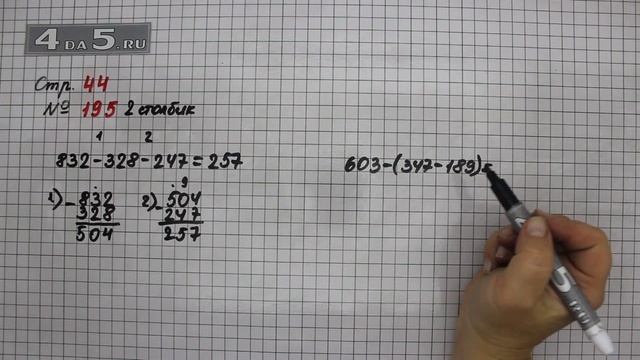 4 DA 5.RU
Стр. 44
№ 195 2 столбик
1 2
832-328-247=257
1) -832
328
504
2) -504
247
257
9
603-(347-189)=